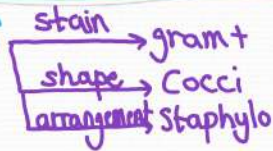 stain → gram +
shape → Cocci
arrangement → Staphylo